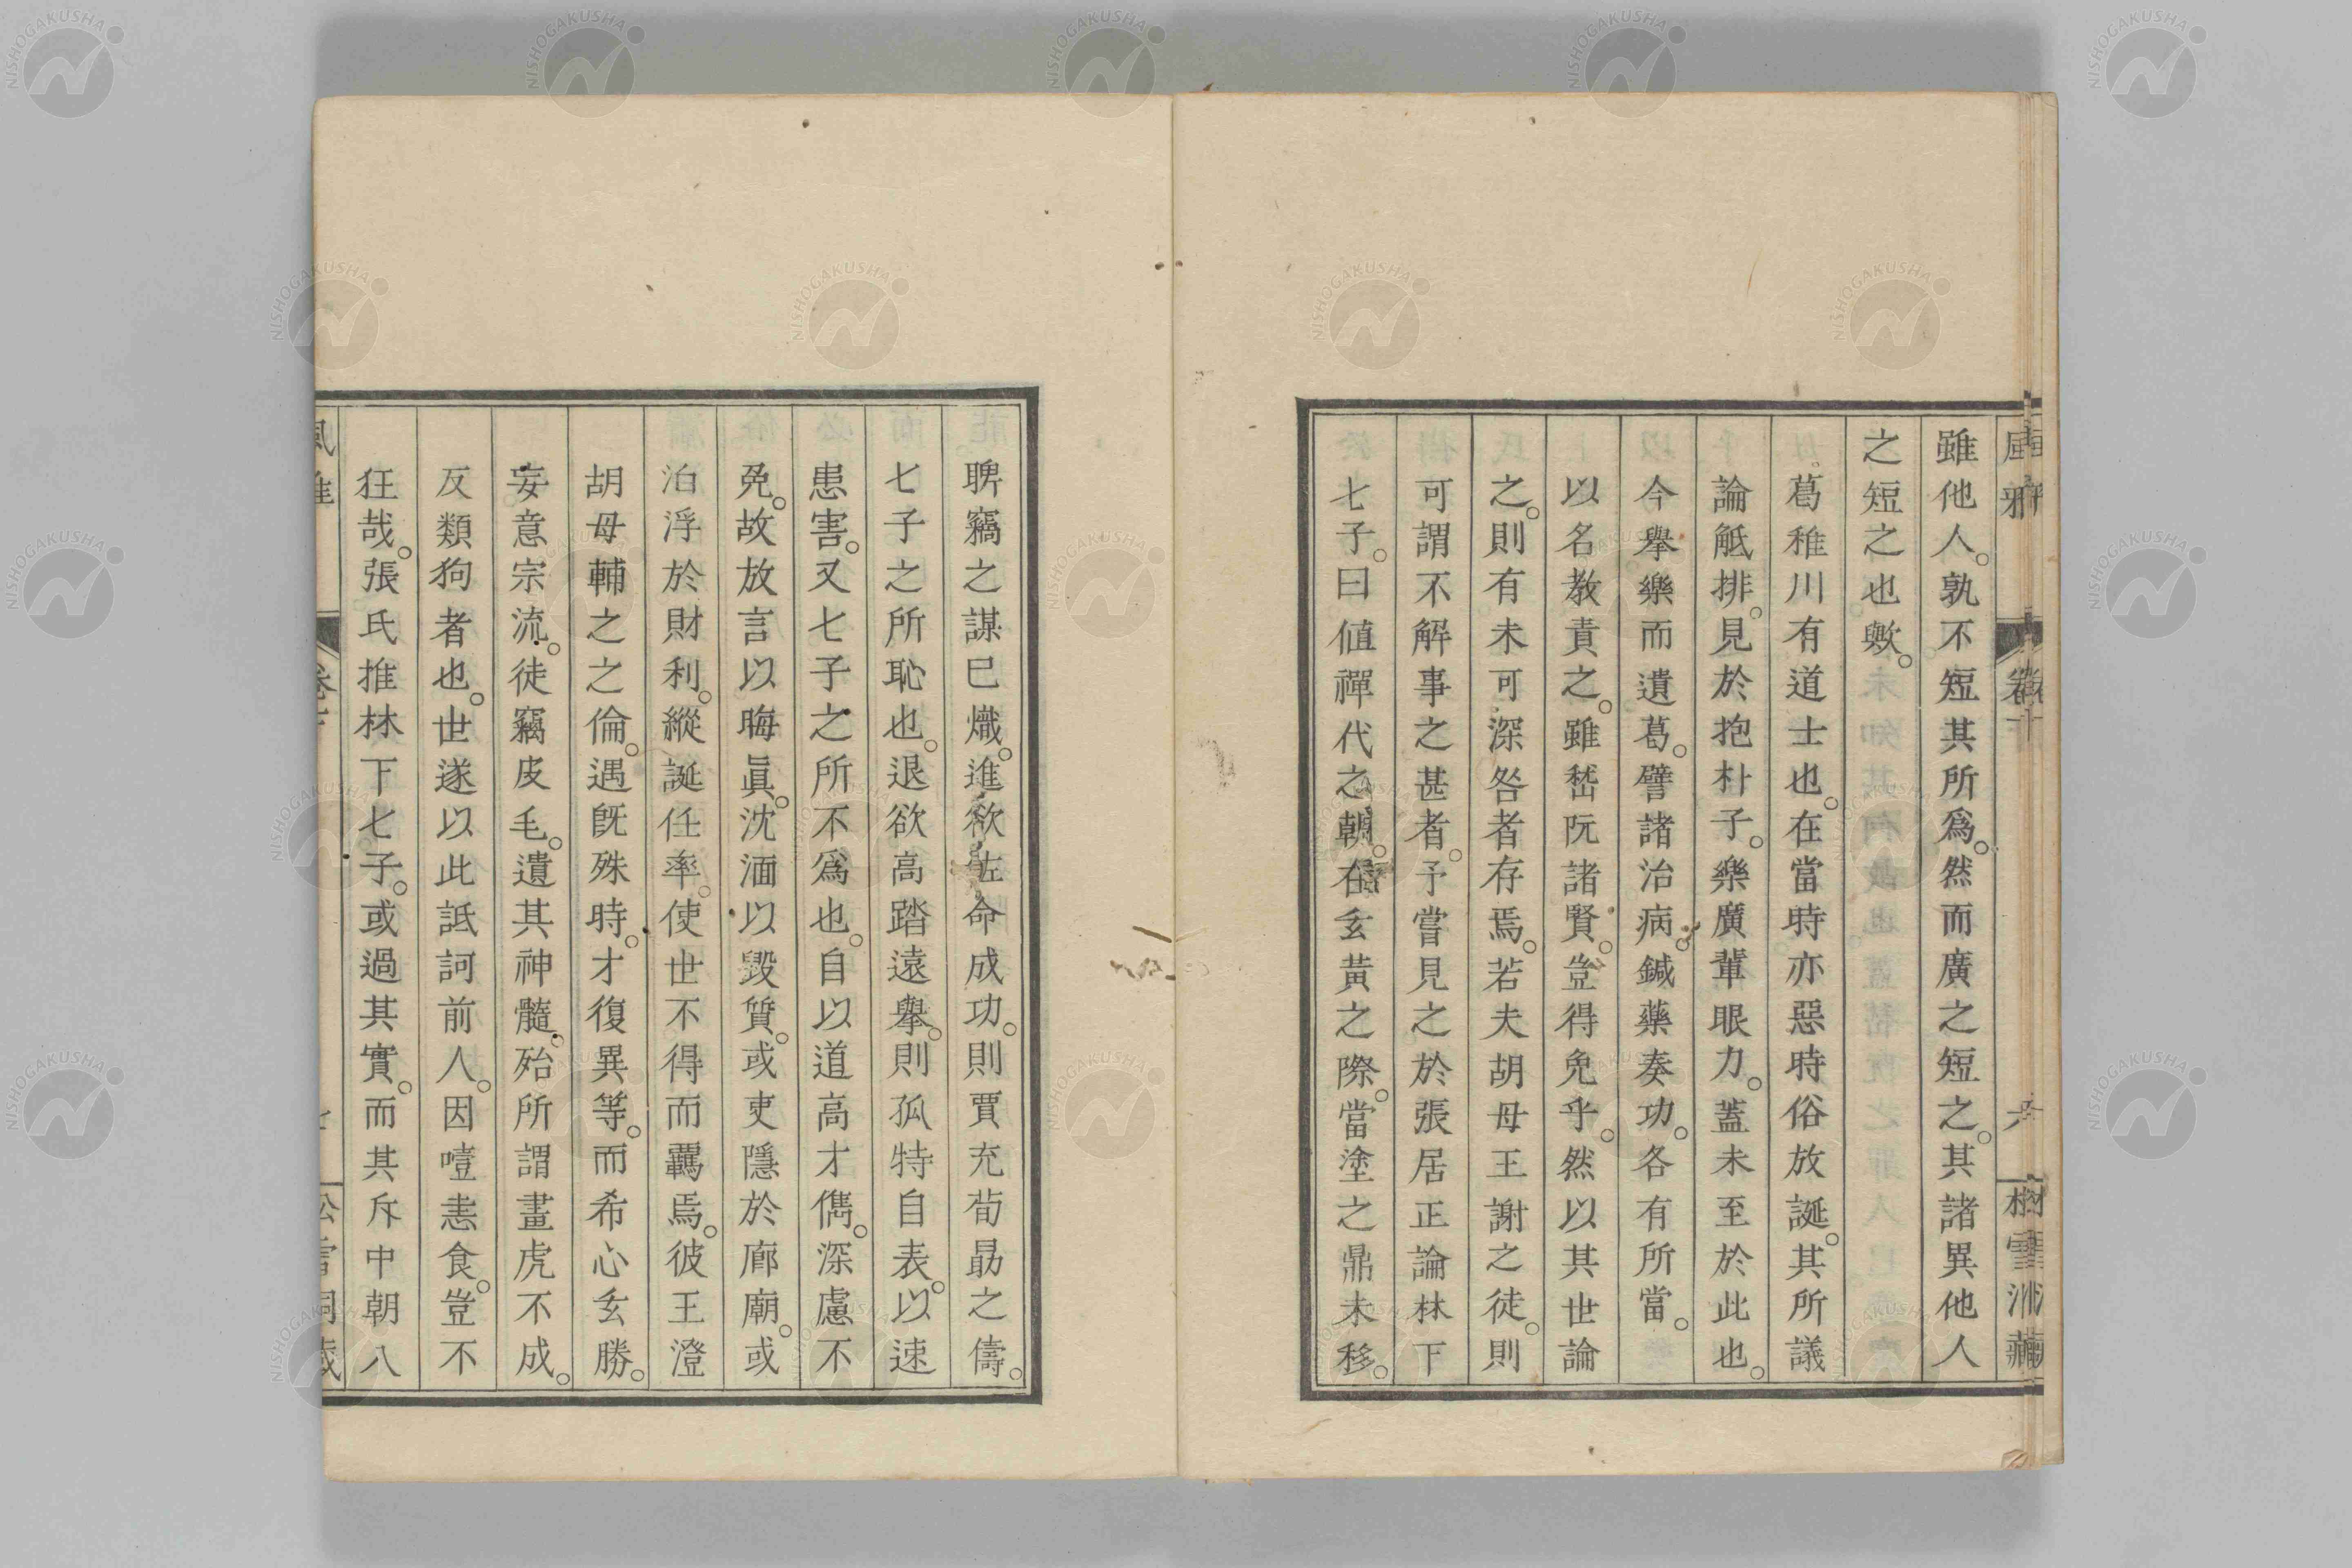 雖他人。孰不短其所爲。然而廣之短之。其諸異他人
之短之也歟。
葛稚川有道士也。在當時亦惡時俗放誕。其所議
論觝排。見於抱朴子。樂廣輩眼力。蓋未至於此也。
今舉樂而遺葛。譬諸治病。鍼藥奏功。各有所當。
以名教責之。雖嵇阮諸賢。豈得免乎。然以其世論
之。則有未可深咎者存焉。若夫胡母王謝之徒。則
可謂不解事之甚者。予嘗見之於張居正論林下
七子。曰値禪代之朝。在玄黃之際。當塗之鼎未移。
聛竊之謀巳熾。進欲佐命成功。則賈充荀勗之儔。
七子之所恥也。退欲高踏遠舉。則孤特自表。以速
患害。又七子之所不爲也。自以道高才儁。深慮不
免。故放言以晦眞。沈湎以毀質。或吏隱於廊廟。或
泊浮於財利。縱誕任率。使世不得而羈焉。彼王澄
胡母輔之之倫。遇旣殊時。才復異等。而希心玄勝。
妄意宗流。徒竊皮毛。遺其神髓。殆所謂畫虎不成。
反類狗者也。世遂以此詆訶前人。因噎恚食。豈不
狂哉。張氏推林下七子。或過其實。而其斥中朝八
NISHOGAKUSHA